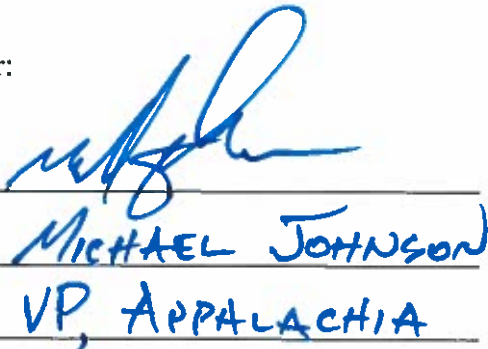 r:
MICHAEL JOHNSON
VP, APPALACHIA